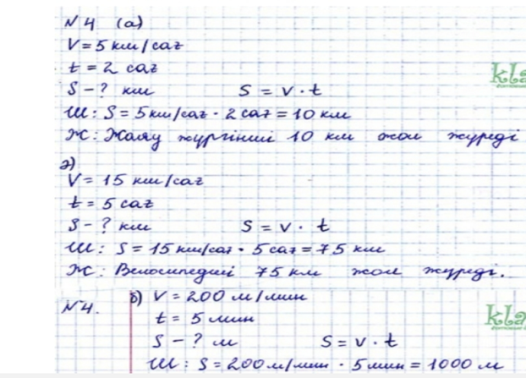 N4 (а)
V = 5 км/сағ
t = 2 сағ
S - ? км S = v · t
Ш: S = 5 км/сағ · 2 сағ = 10 км
Ж: Жаяу жүргінші 10 км жол жүреді
ә)
V = 15 км/сағ
t = 5 сағ
S - ? км S = v · t
Ш: S = 15 км/сағ · 5 сағ = 75 км
Ж: Велосипедші 75 км жол жүреді.
N4. б) V = 200 м/мин
t = 5 мин
S - ? м S = v · t
Ш: S = 200 м/мин · 5 мин = 1000 м